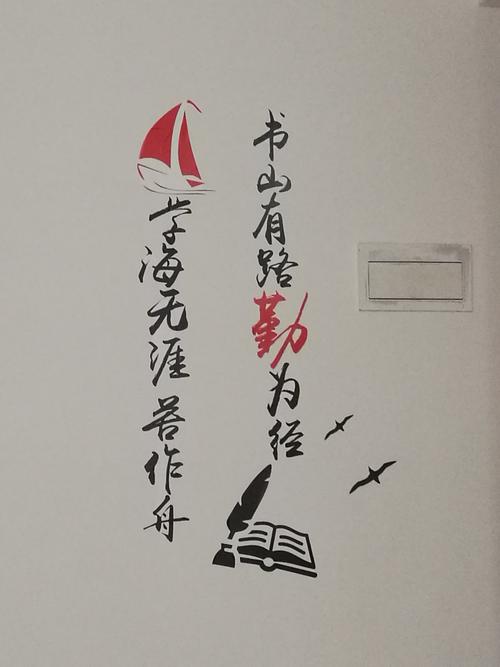 书山有路勤为经
学海无涯苦作舟